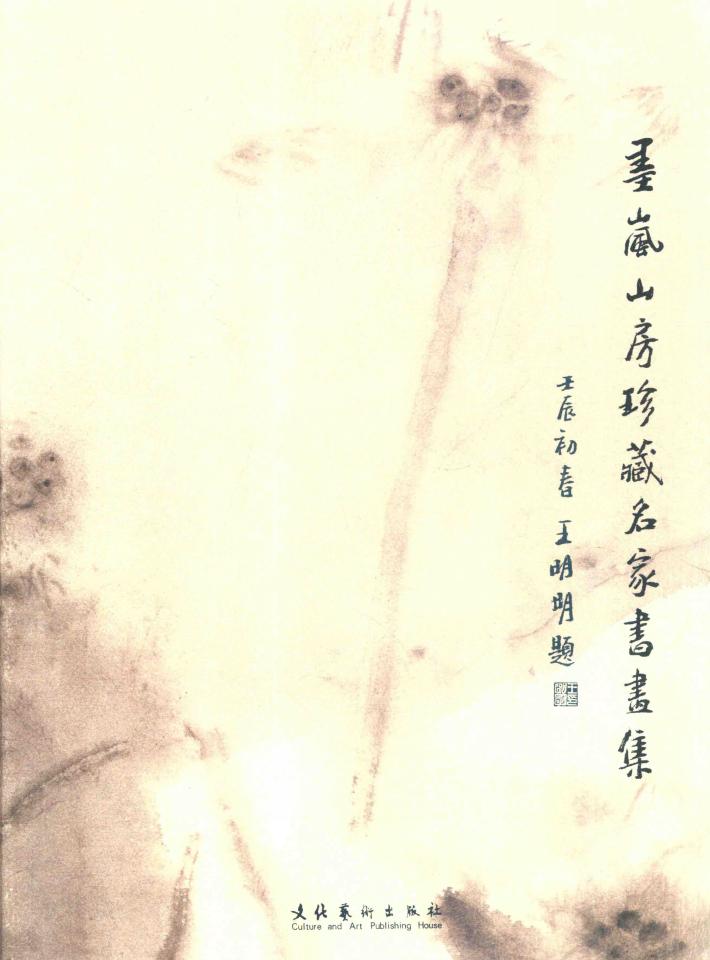 墨嵐山房珍藏名家書畫集
壬辰初春 王明明題
文化藝術出版社
Culture and Art Publishing House